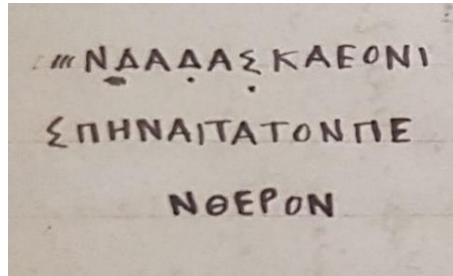 ΝΔΑΔΑΣΚΑΕΟΝΙ
ΣΠΗΝΑΙΤΑΤΟΝΠΕ
ΝΘΕΡΟΝ